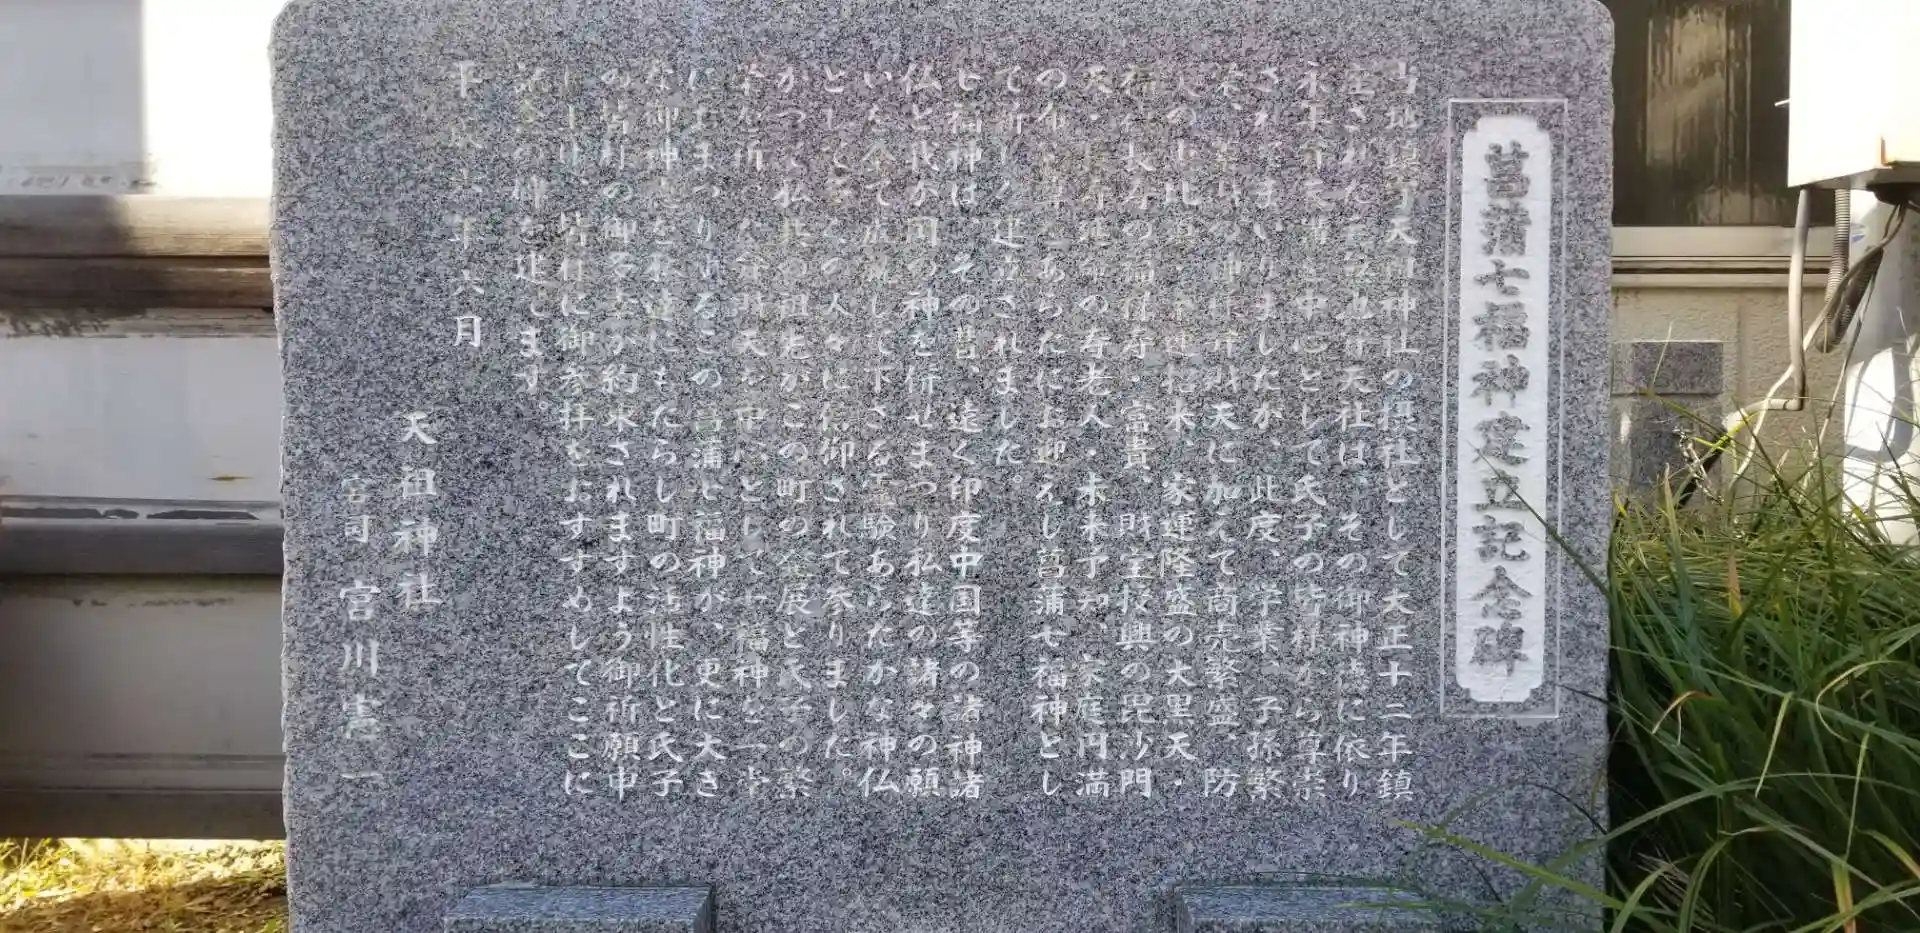 菖蒲七福神建立記念碑
当地鎮守天祖神社の摂社として大正十二年鎮
座された 弁天社は、その御神徳に依り
永年弁天講を中心として氏子の皆様から尊崇
されてまいりましたが、此度、学業、子孫繁
栄、 の神様弁財天に加えて商売繁盛、防
火の 、家運隆盛の大黒天・
福徳長寿の福禄寿・富貴、財宝授興の毘沙門
天・長寿延命の寿老人・未来予知、家庭円満
の布袋尊をあらたにお迎えし菖蒲七福神とし
て新しく建立されました。
七福神は、その昔、遠く印度中国等の諸神諸
仏と我が国の神を併せまつり私達の諸々の願
いを全て成就して下さる霊験あらたかな神仏
として多くの人々に信仰されて参りました。
かつて私共の祖先がこの町の発展と氏子の繁
栄を祈った弁財天を中心として七福神を一堂
におまつりするこの菖蒲七福神が、更に大き
な御神徳を私達にもたらし町の活性化と氏子
の皆様の御多幸が約束されますよう御祈願申
し上げ、皆様に御参拝をおすすめしてここに
記念の碑を建てます。
平成 年六月
天祖神社
宮司 宮川憲一